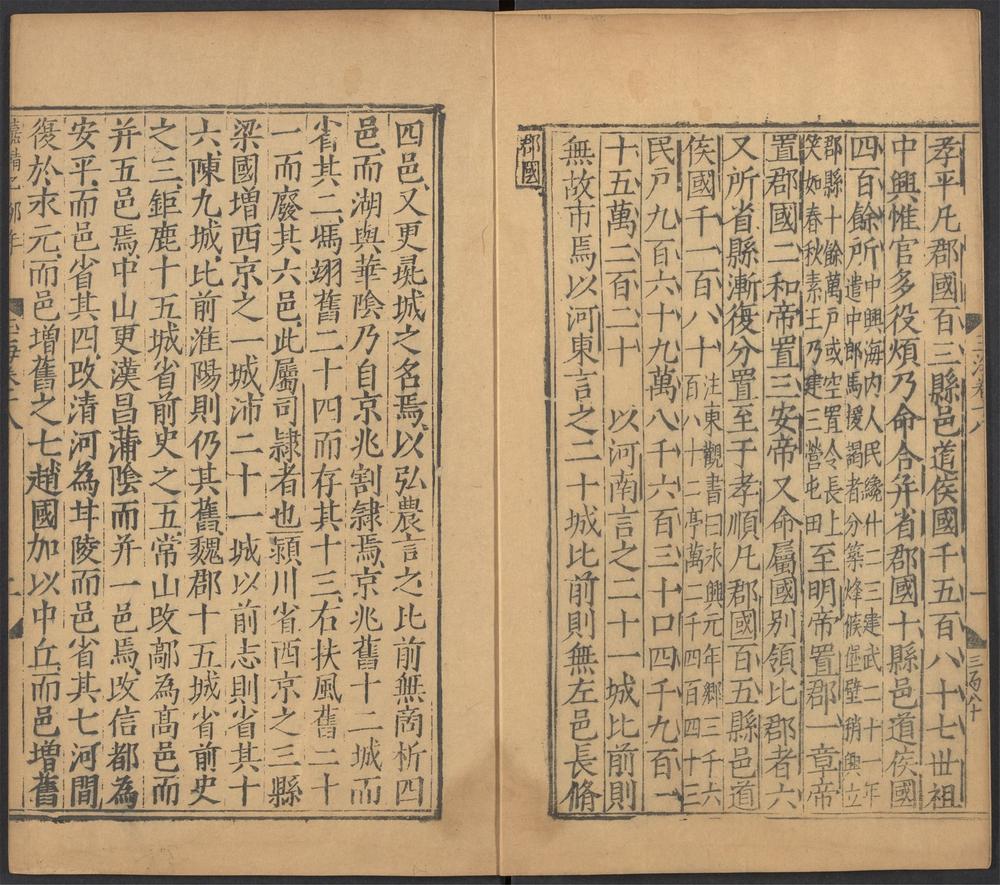 孝平凡郡國百三縣邑道侯國千五百八十七丗祖
中興惟官多役煩乃命合并省郡國十縣邑道侯國
四百餘所
中興海内人民纔什二三建武二十一年
遣中郎馬援謁者分築烽候堡壁稍興立
郡縣十餘萬户或空置令長上
笑如春秋素王乃建三營屯田
至明帝置郡一章帝
置郡國二和帝置三安帝又命屬國別領比郡者六
又所省縣漸復分置至于孝順凡郡國百五縣邑道
侯國千一百八十
注東觀書曰永興元年鄉三千六
百八十二亭萬二千四百四十三
民户九百六十九萬八千六百三十口四千九百一
十五萬二百二十 以河南言之二十一城比前則
無故市焉以河東言之二十城比前則無左邑長脩
郡國
四邑又更彘城之名焉以弘農言之比前無商析四
邑而湖與華陰乃自京兆割隸焉京兆舊十二城而
省其二馮翊舊二十四而存其十三右扶風舊二十
一而廢其六邑此屬司隸者也潁川省西京之三縣
梁國增西京之一城沛二十一城以前志則省其十
六陳九城比前淮陽則仍其舊魏郡十五城省前史
之三鉅鹿十五城省前史之五常山改鄗為高邑而
并五邑焉中山更漢昌蒲陰而并一邑焉改信都為
安平而邑省其四改清河為甘陵而邑省其七河間
復於永元而邑增舊之七趙國加以中丘而邑增舊